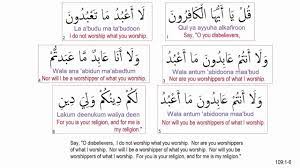 قُلْ يَا أَيُّهَا الْكَافِرُونَ
Qul ya ayyuha alkafiroon
Say, "O disbelievers,
1
لَا أَعْبُدُ مَا تَعْبُدُونَ
La a'budu ma ta'budoon
I do not worship what you worship.
2
وَلَا أَنتُمْ عَابِدُونَ مَا أَعْبُدُ
Wala antum 'abidoona ma a'bud
Nor are you worshippers of what I worship.
3
وَلَا أَنَا عَابِدٌ مَّا عَبَدتُّمْ
Wala ana 'abidun ma 'abadtum
Nor will I be a worshipper of what you worship.
4
وَلَا أَنتُمْ عَابِدُونَ مَا أَعْبُدُ
Wala antum 'abidoona ma a'bud
Nor will you be worshippers of what I worship.
5
لَكُمْ دِينُكُمْ وَلِيَ دِينِ
Lakum deenukum waliya deen
For you is your religion, and for me is my religion."
6
Say, "O disbelievers, I do not worship what you worship. Nor are you worshippers
of what I worship. Nor will I be a worshipper of what you worship. Nor will you
be worshippers of what I worship. For you is your religion, and for me is my religion."
109:1-6